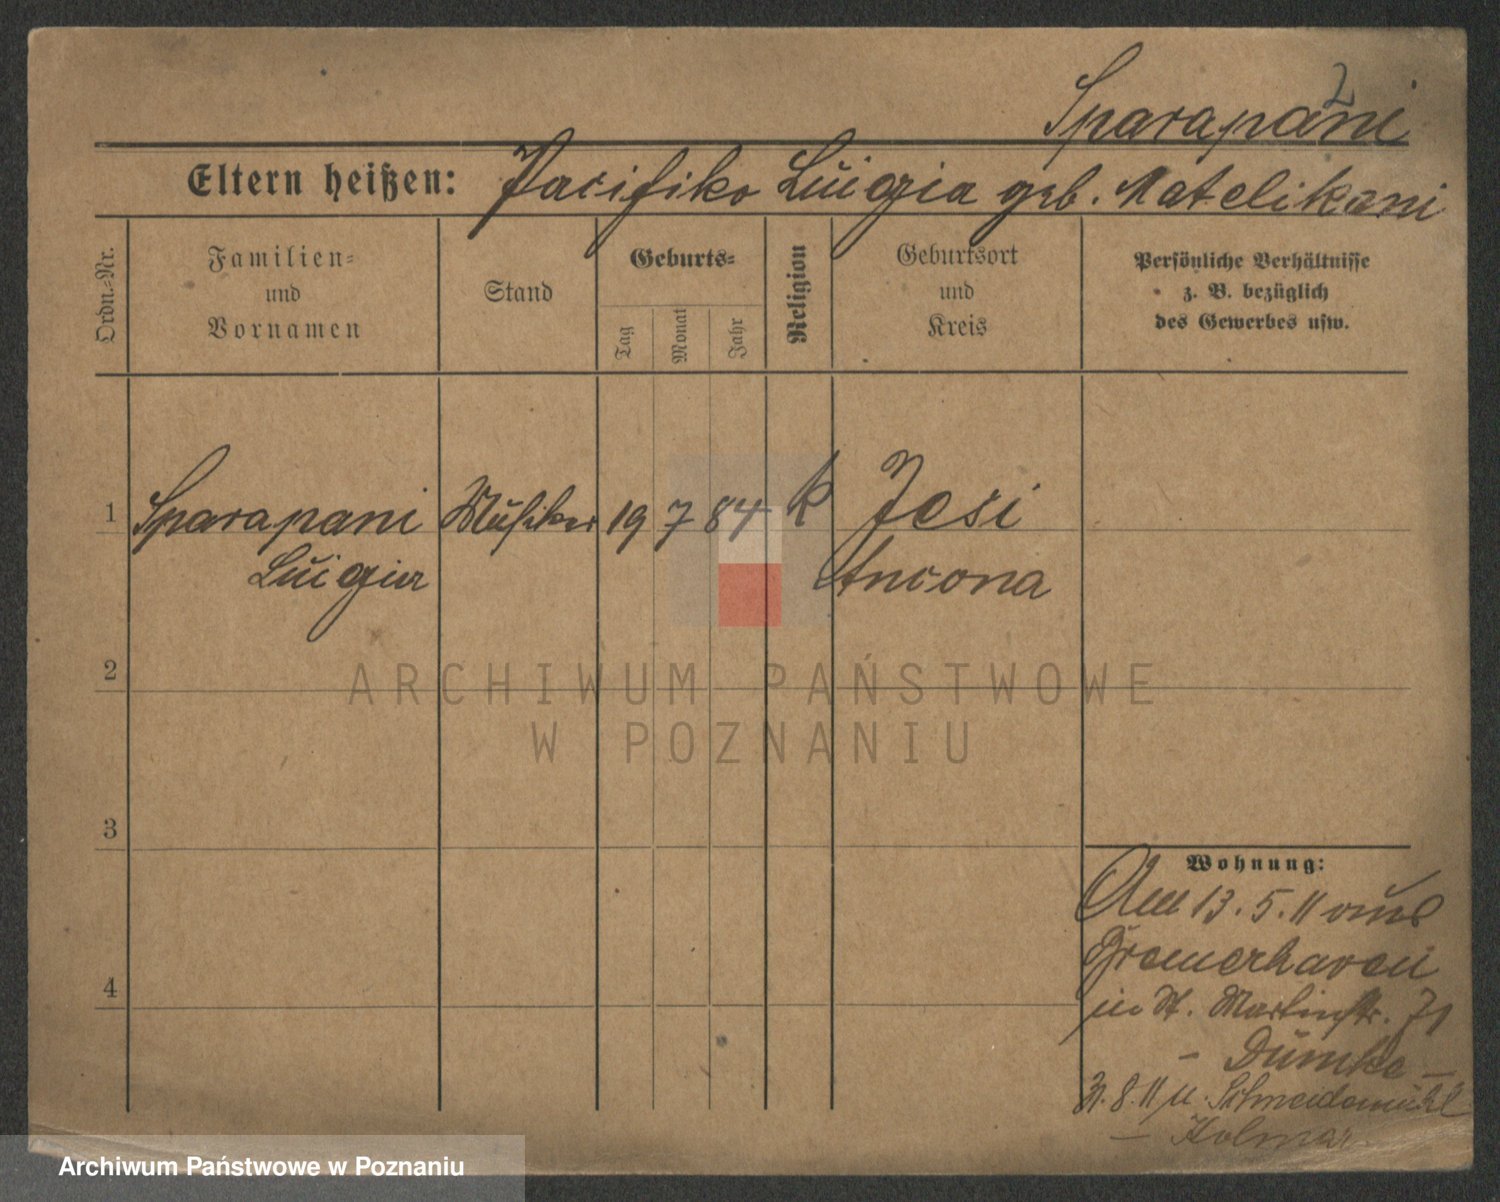 2
Sparapani
Eltern heißen: Pacifiko Luigia geb. Matelikani
Ordn.=Nr.
Familien=
und
Vornamen
Stand
Geburts=
Tag
Monat
Jahr
Religion
Geburtsort
und
Kreis
Persönliche Verhältnisse
z. B. bezüglich
des Gewerbes usw.
1 Sparapani Musiker 19 7 84 k Jesi
Luigia Ancona
2
3
4
Wohnung:
Am 13.5.11 aus
Bremerhaven
in St. Martinstr. 71
– Dümke –
31.8.11 n. Schneidemühl
– Kolmar
ARCHIWUM PAŃSTWOWE
W POZNANIU
Archiwum Państwowe w Poznaniu